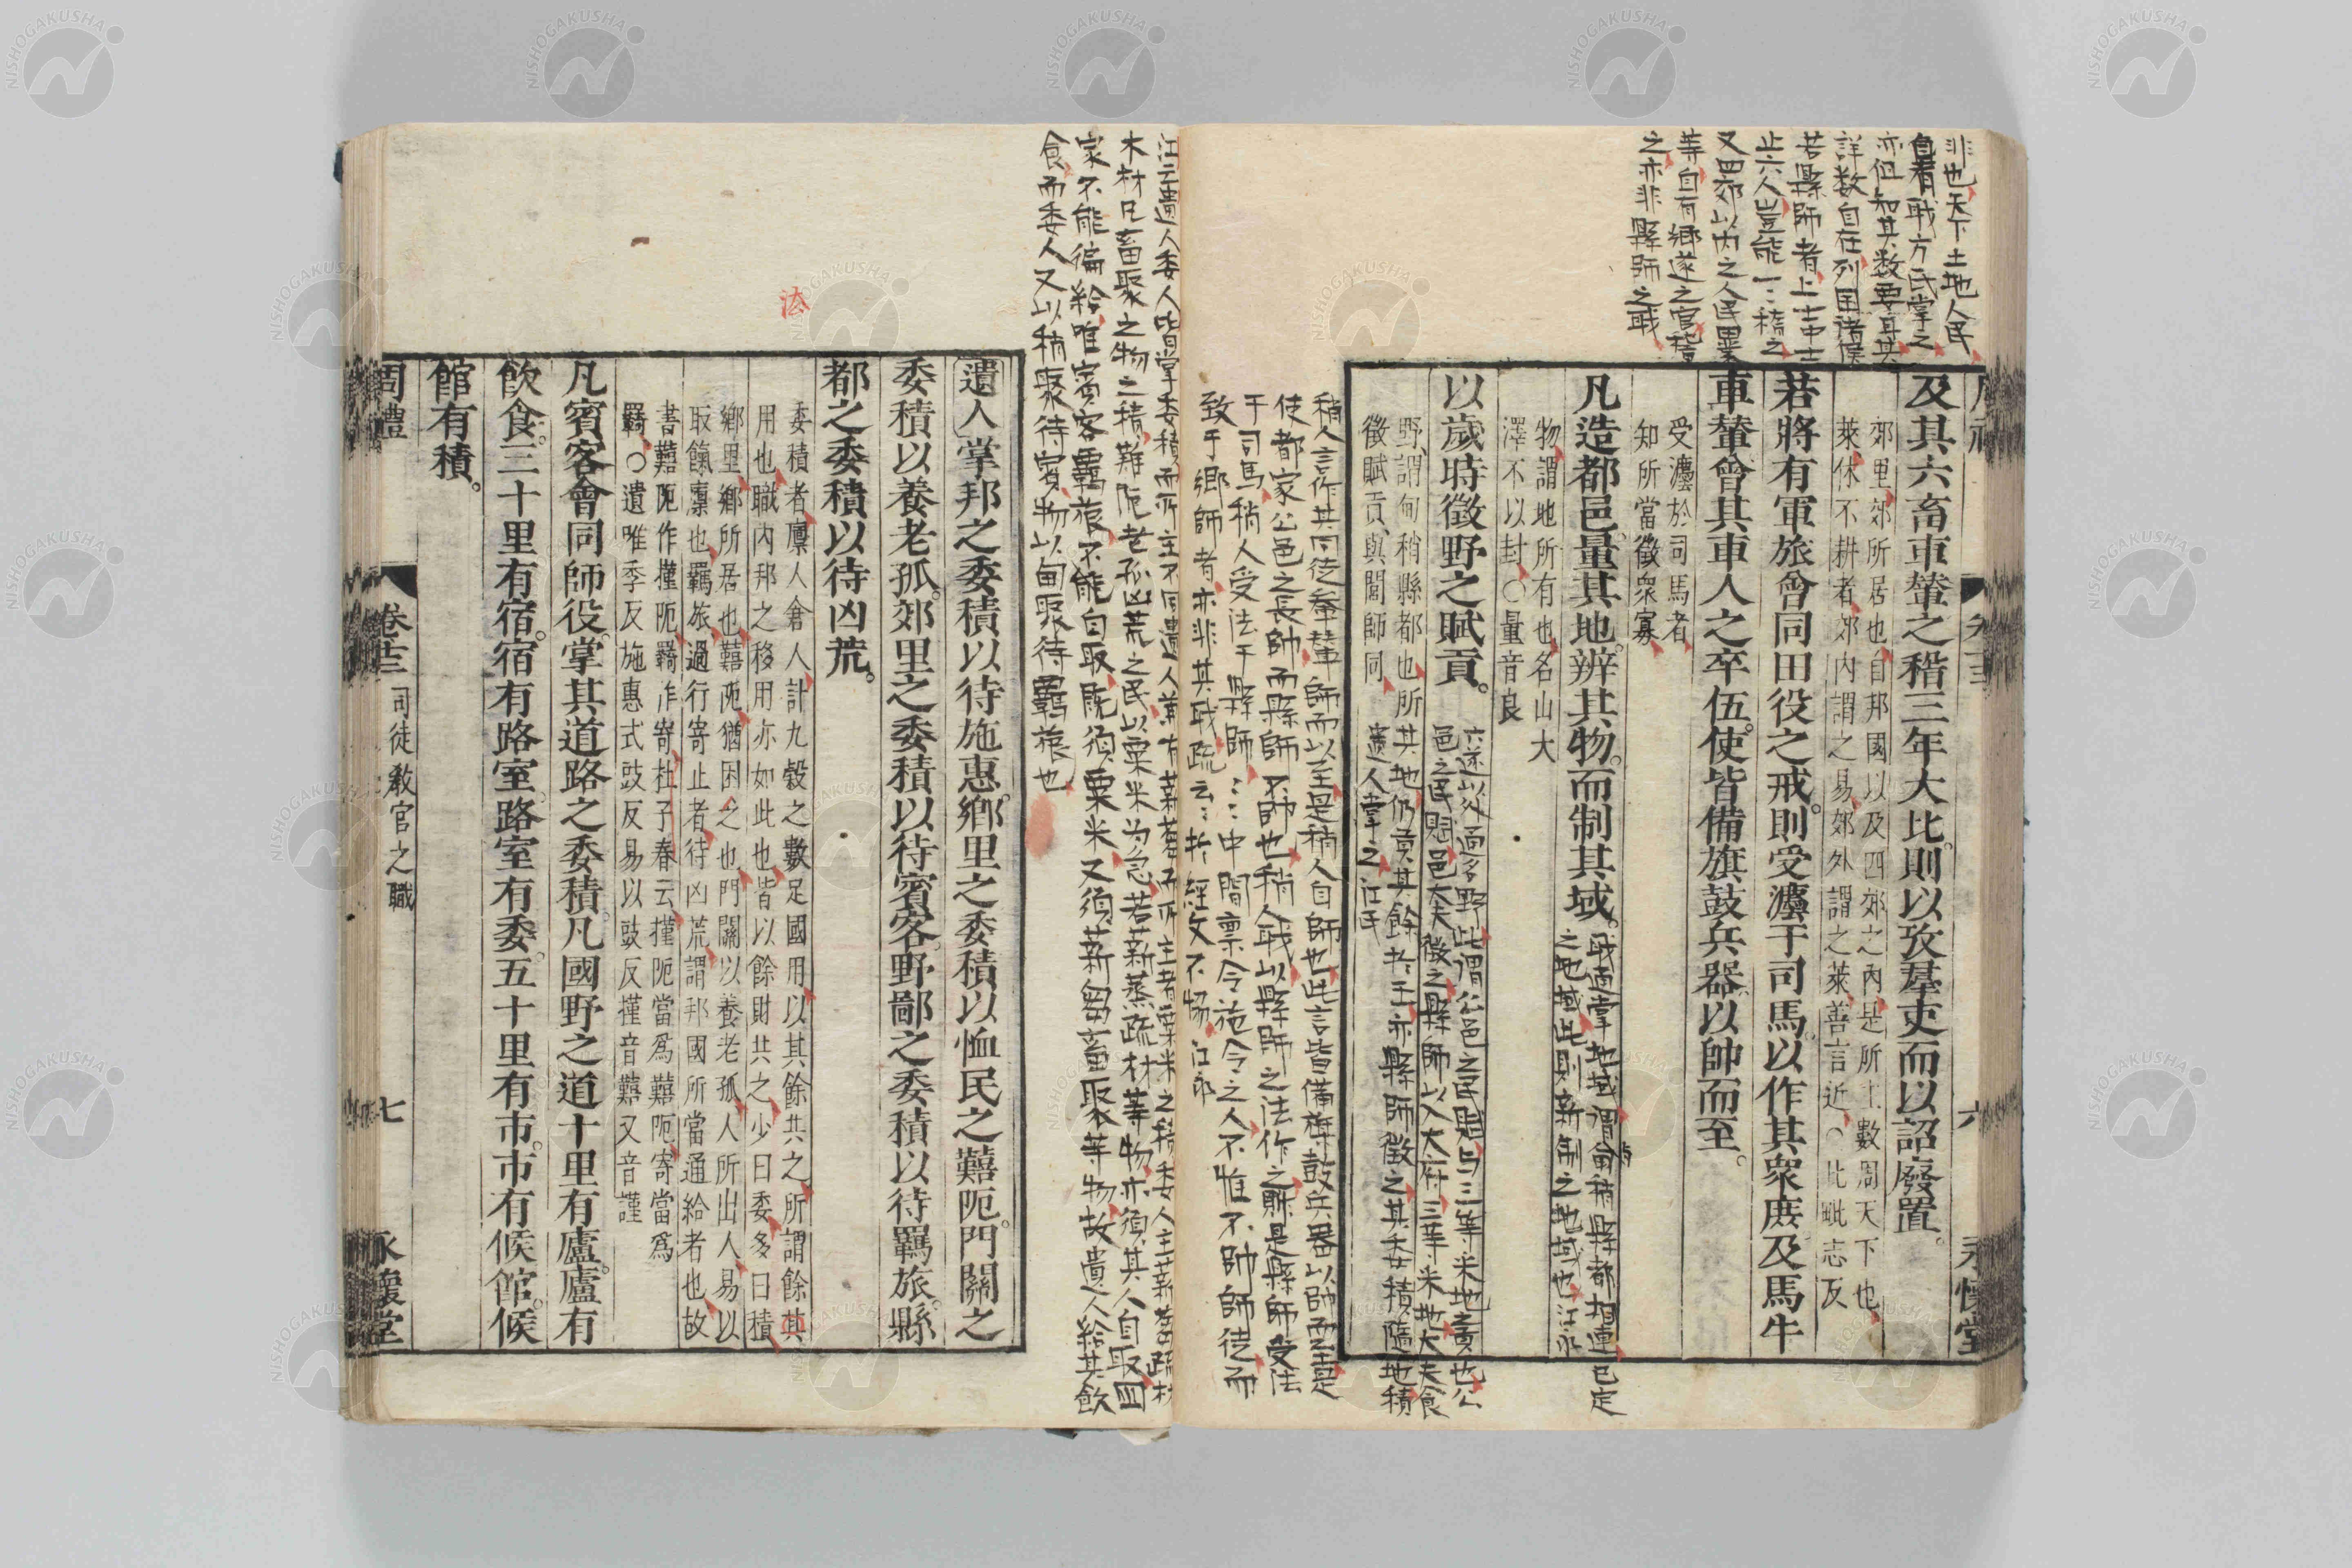 非也天下土地人民
自有職方氏掌之
亦但知其数要其
詳数自在列国諸侯
若縣師者上士中士
止六人豈能一〻稽之
又四郊以内之人民畢
等自有郷遂之官稽
之亦非縣師之職
及其六畜車輦之稽三年大比則以攷羣吏而以詔廢置。
郊里郊所居也自邦國以及四郊之內是所主數周天下也
萊休不耕者郊內謂之易郊外謂之萊善言近○比毗志反
若將有軍旅會同田役之戒則受灋于司馬以作其衆庶及馬牛
車輦會其車人之卒伍使皆備旗鼓兵器以帥而至。
受灋於司馬者
知所當徵衆寡
凡造都邑量其地辨其物而制其域。
職通掌地域謂甸稍縣都相連已定
之地域此則新制之地域也江永
物謂地所有也名山大
澤不以封○量音良
以歲時徵野之賦貢。
六遂以外通多野此謂公邑之民賦与三等采地之貢也公
邑之民賦邑大夫徵之縣師以入大府三等采地大夫食
野謂甸稍縣都也所
徵賦貢與閭師同
其地仍貢其餘於王亦縣師徵之其委積隨地積
遺人掌之江氏
稍人言作其同徒輂輦帥而以至是稍人自帥也此言皆備旗鼓兵器以帥而至是
使都家公邑之長帥而縣師不帥也稍人職以縣師之法作之縣是縣師受法
于司馬稍人受法于縣師〻〻中間稟令施令之人不惟不帥師徒而
致于鄉師者亦非其職疏云〻於經文不協江永
江云遺人委人皆掌委積而所主不同遺人兼有薪蒸而所主者粟米之積委人主薪蒸疏材
木材凡畜聚之物之積難阨老孤凶荒之民以粟米为急若薪蒸疏材等物亦須其人自取国
家不能徧給唯賓客羈旅不能自取既須粟米又須薪芻畜聚等物故遺人給其飲
食而委人又以稍聚待賓物以甸聚待羈旅也
遺人掌邦之委積以待施惠鄉里之委積以恤民之囏阨門關之
委積以養老孤郊里之委積以待賓客野鄙之委積以待羈旅縣
都之委積以待凶荒。
委積者廩人倉人計九穀之數足國用以其餘共之所謂餘其
用也職內邦之移用亦如此也皆以餘財共之少曰委多曰積
鄉里鄉所居也囏阨猶困乏也門關以養老孤人所出入易以
取餼廩也羈旅過行寄止者待凶荒謂邦國所當通給者也故
書囏阨作㨷阨羇作寄杜子春云㨷阨當爲囏阨寄當爲
羇○遺唯季反施惠式豉反易以豉反㨷音囏又音謹
凡賓客會同師役掌其道路之委積凡國野之道十里有廬廬有
飲食三十里有宿宿有路室路室有委五十里有市市有候館候
館有積。
周禮
卷十三
司徒教官之職
七
永懷堂
六
永懷堂
法